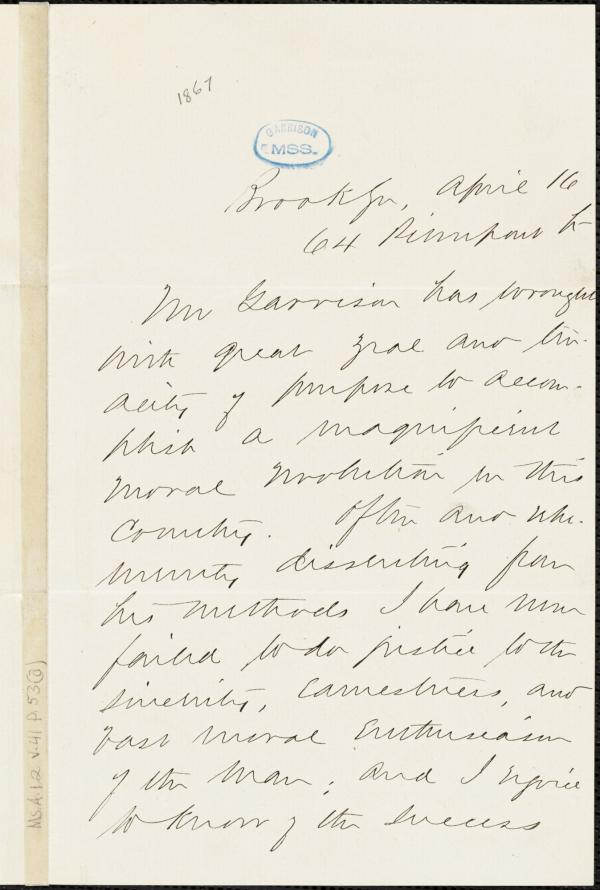 1867
GARRISON
MSS.
Brooklyn, April 16
64 Pierrepont St
Mr Garrison has wrought
with great zeal and ten-
acity of purpose to accom-
plish a magnificent
moral revolution in this
Country. Often and vehe-
mently dissenting from
his methods I have never
failed to do justice to the
sincerity, Earnestness, and
vast moral Enthusiasm
of the Man; And I rejoice
to know of the success
MS.A.1.2 V.41 p 53(a)